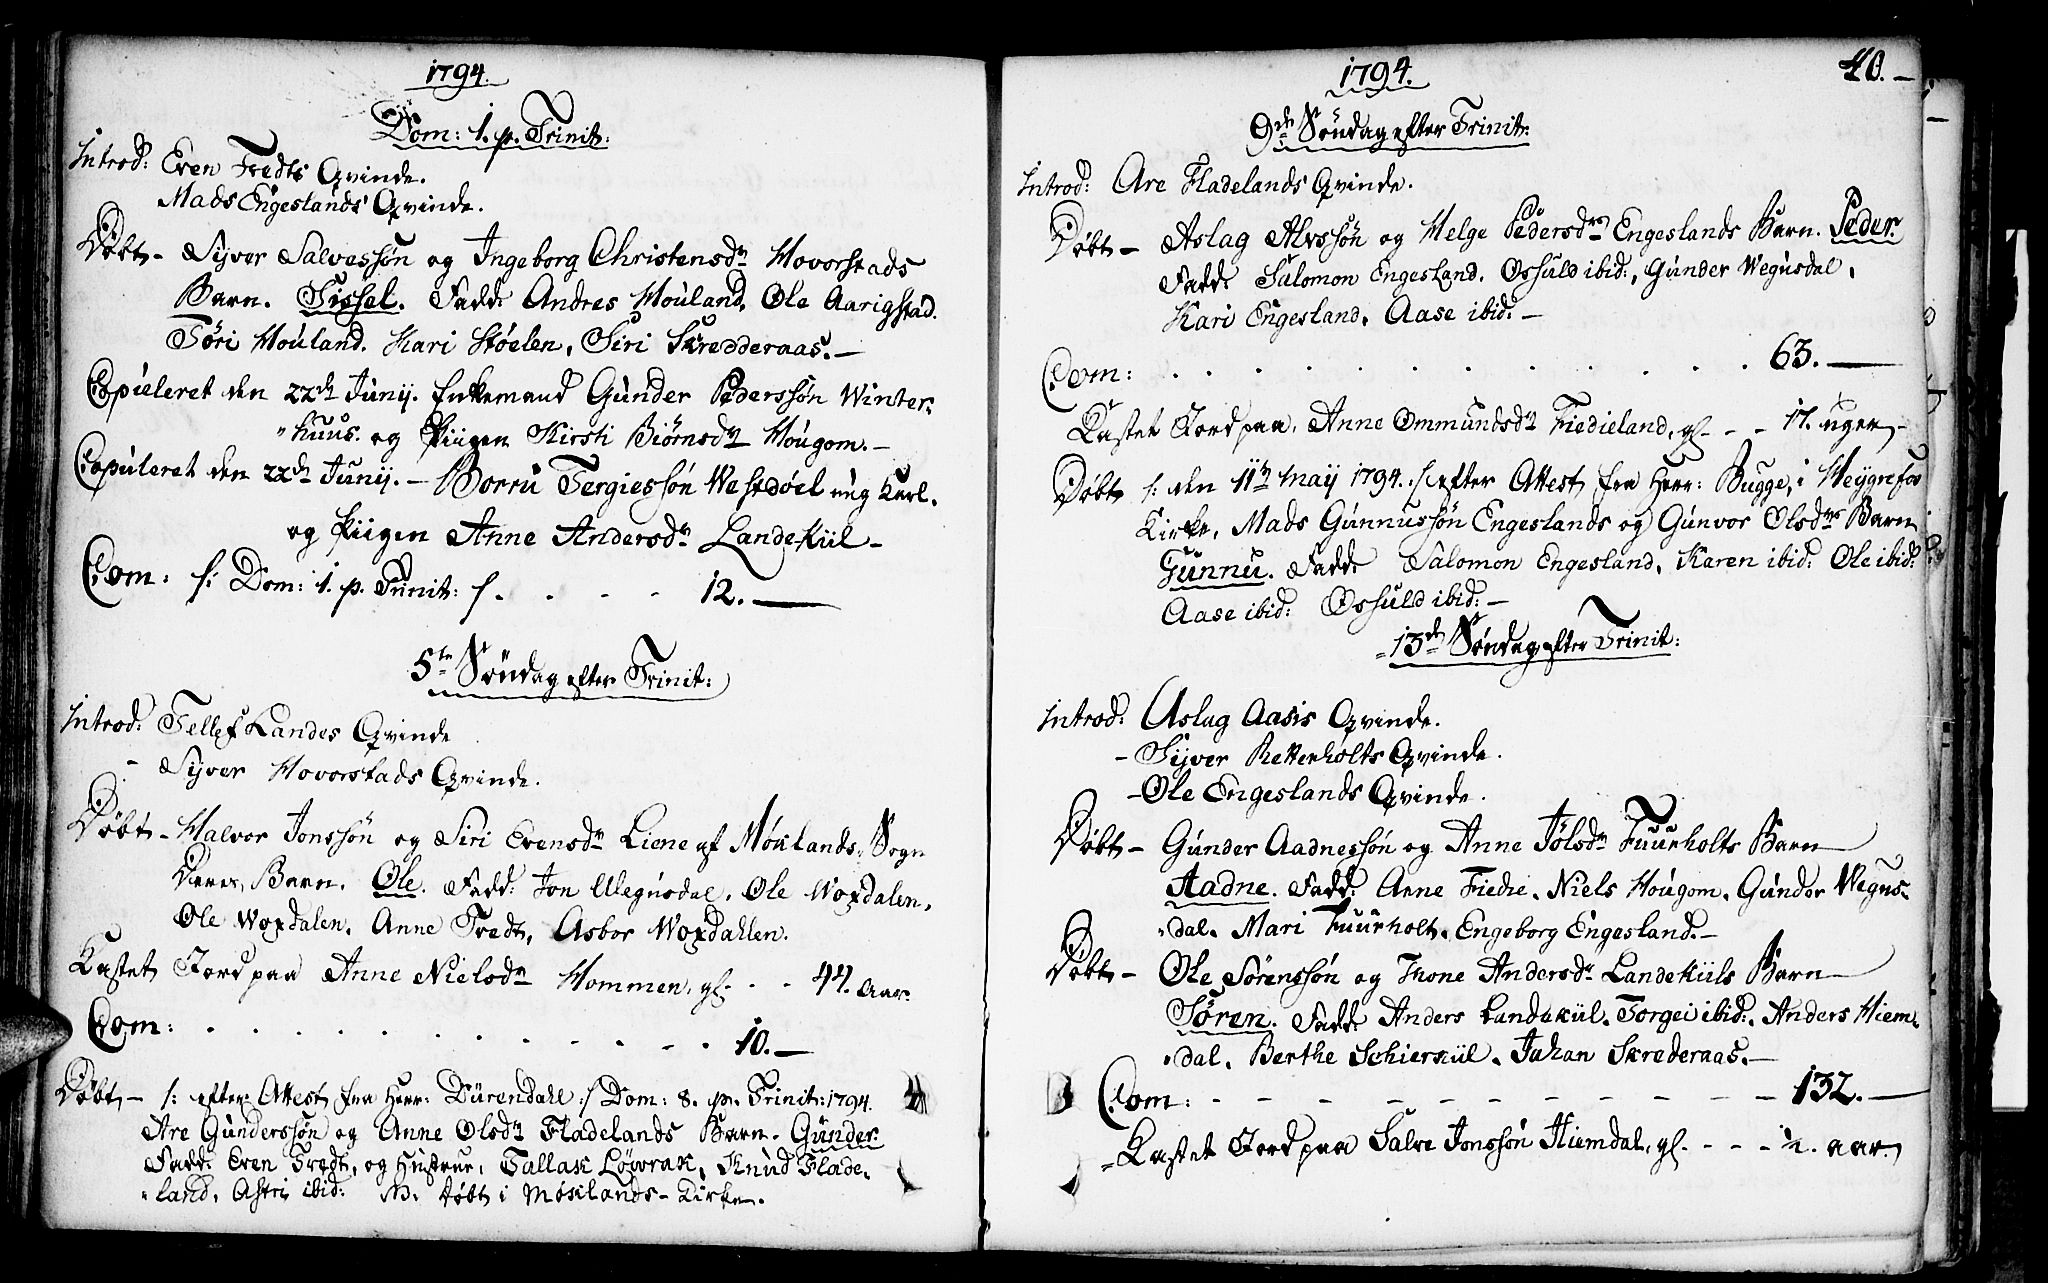 1794.
Dom: 1. p. Trinit:
Introd: Even Tredts Qvinde.
Mads Engeslands Qvinde.
Døbt – Syver Salvessøn og Ingeborg Christensdr Hovorstads
Barn. Sissel. Fadd: Andres Houland, Ole Aarigstad.
Töri Houland. Kari Støelen, Siri Skredderaas. –
Copuleret den 22de Junij. Enkemand Gunder Pederssøn Winter:
„huus. og Piigen Kirsti Biörnsdr Hougom. –
Copuleret den 22de Junij. – Borru Tergiessøn Westdøel ung Karl.
og Piigen Anne Andersdr Landekiil –
Com: /: Dom: 1. p. Trinit: / . . - - 12. –
5te Söndag efter Trinit:
Introd: Tellef Landes Qvinde
- Syver Hovorstads Qvinde.
Døbt – Halvor Jonssøn og Siri Evensdr Liene af Møklands Sogn
Deres, Barn. Ole. Fadd: Jon Wegusdal, Ole Woxdalen,
Ole Woxdalen. Anne Tredt, Asbor Woxdahlen.
Kastet Jord paa Anne Nielsdr Hommen, gl. . - 44. aar.
Com: . . . . . . . . . . 10. –
Døbt – /: efter Attest fra Herr: Dürendahl :/ Dom: 8. p. Trinit: 1794.
Are Gunderssøn og Anne Olsdr Fladelands Barn. Gunder.
Fadd: Even Tredt, og Hustrue, Tallak Löwrak, Knud Flade:
„land, Astri ibid: NB. døbt i Møsklands – Kirke.
40. –
1794.
9de Söndag efter Trinit:
Introd: Are Fladelands Qvinde.
Døbt – Aslag Alvssøn og Helge Pedersdrs Engeslands Barn. Peder.
Fadd: Salomon Engesland. Ossuld ibid:, Gunder Wegusdal,
Kari Engesland, Aase ibid: –
Com: . . . . . . . . . . 63. –
Kastet Jord paa, Anne Ommundsdr Fiedieland, gl. - - 17. uger –
Døbt /: den 11te Maij 1794. :/ efter Attest fra Herr: Bugge, i Heygnefos
Kirke, Mads Gunnussøn Engeslands og Gunvor Olsdrs Barn
Gunnu. Fadd: Salomon Engesland, Karen ibid: Ole ibid:
Aase ibid: Ossuld ibid: –
13de Söndag efter Trinit:
Introd: Aslag Aasis Qvinde.
- Syver Rettenholts Qvinde.
- Ole Engeslands Qvinde.
Døbt – Gunder Aadnessøn og Anne Jölsdr Fuurholts Barn
Aadne. Fadd: Anne Fiedie, Niels Hougom, Gunder Wegus:
„dal. Mari Fuurholt. Engeborg Engesland. –
Døbt – Ole Sörenssøn og Thone Andersdr Landekiils Barn
Sören. Fadd: Anders Landekiil. Torgei ibid:, Anders Hiem:
„dal, Berthe Schierkiil, Johan Skrederaas. –
Com: - - - - - - - - - - 132. –
Kastet Jord paa Salve Jonssøn Hiemdal, gl. - - - ½. aar.